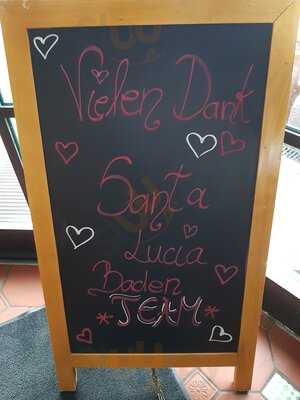 Vielen Dank
Santa
Lucia
Baden
* TEAM *